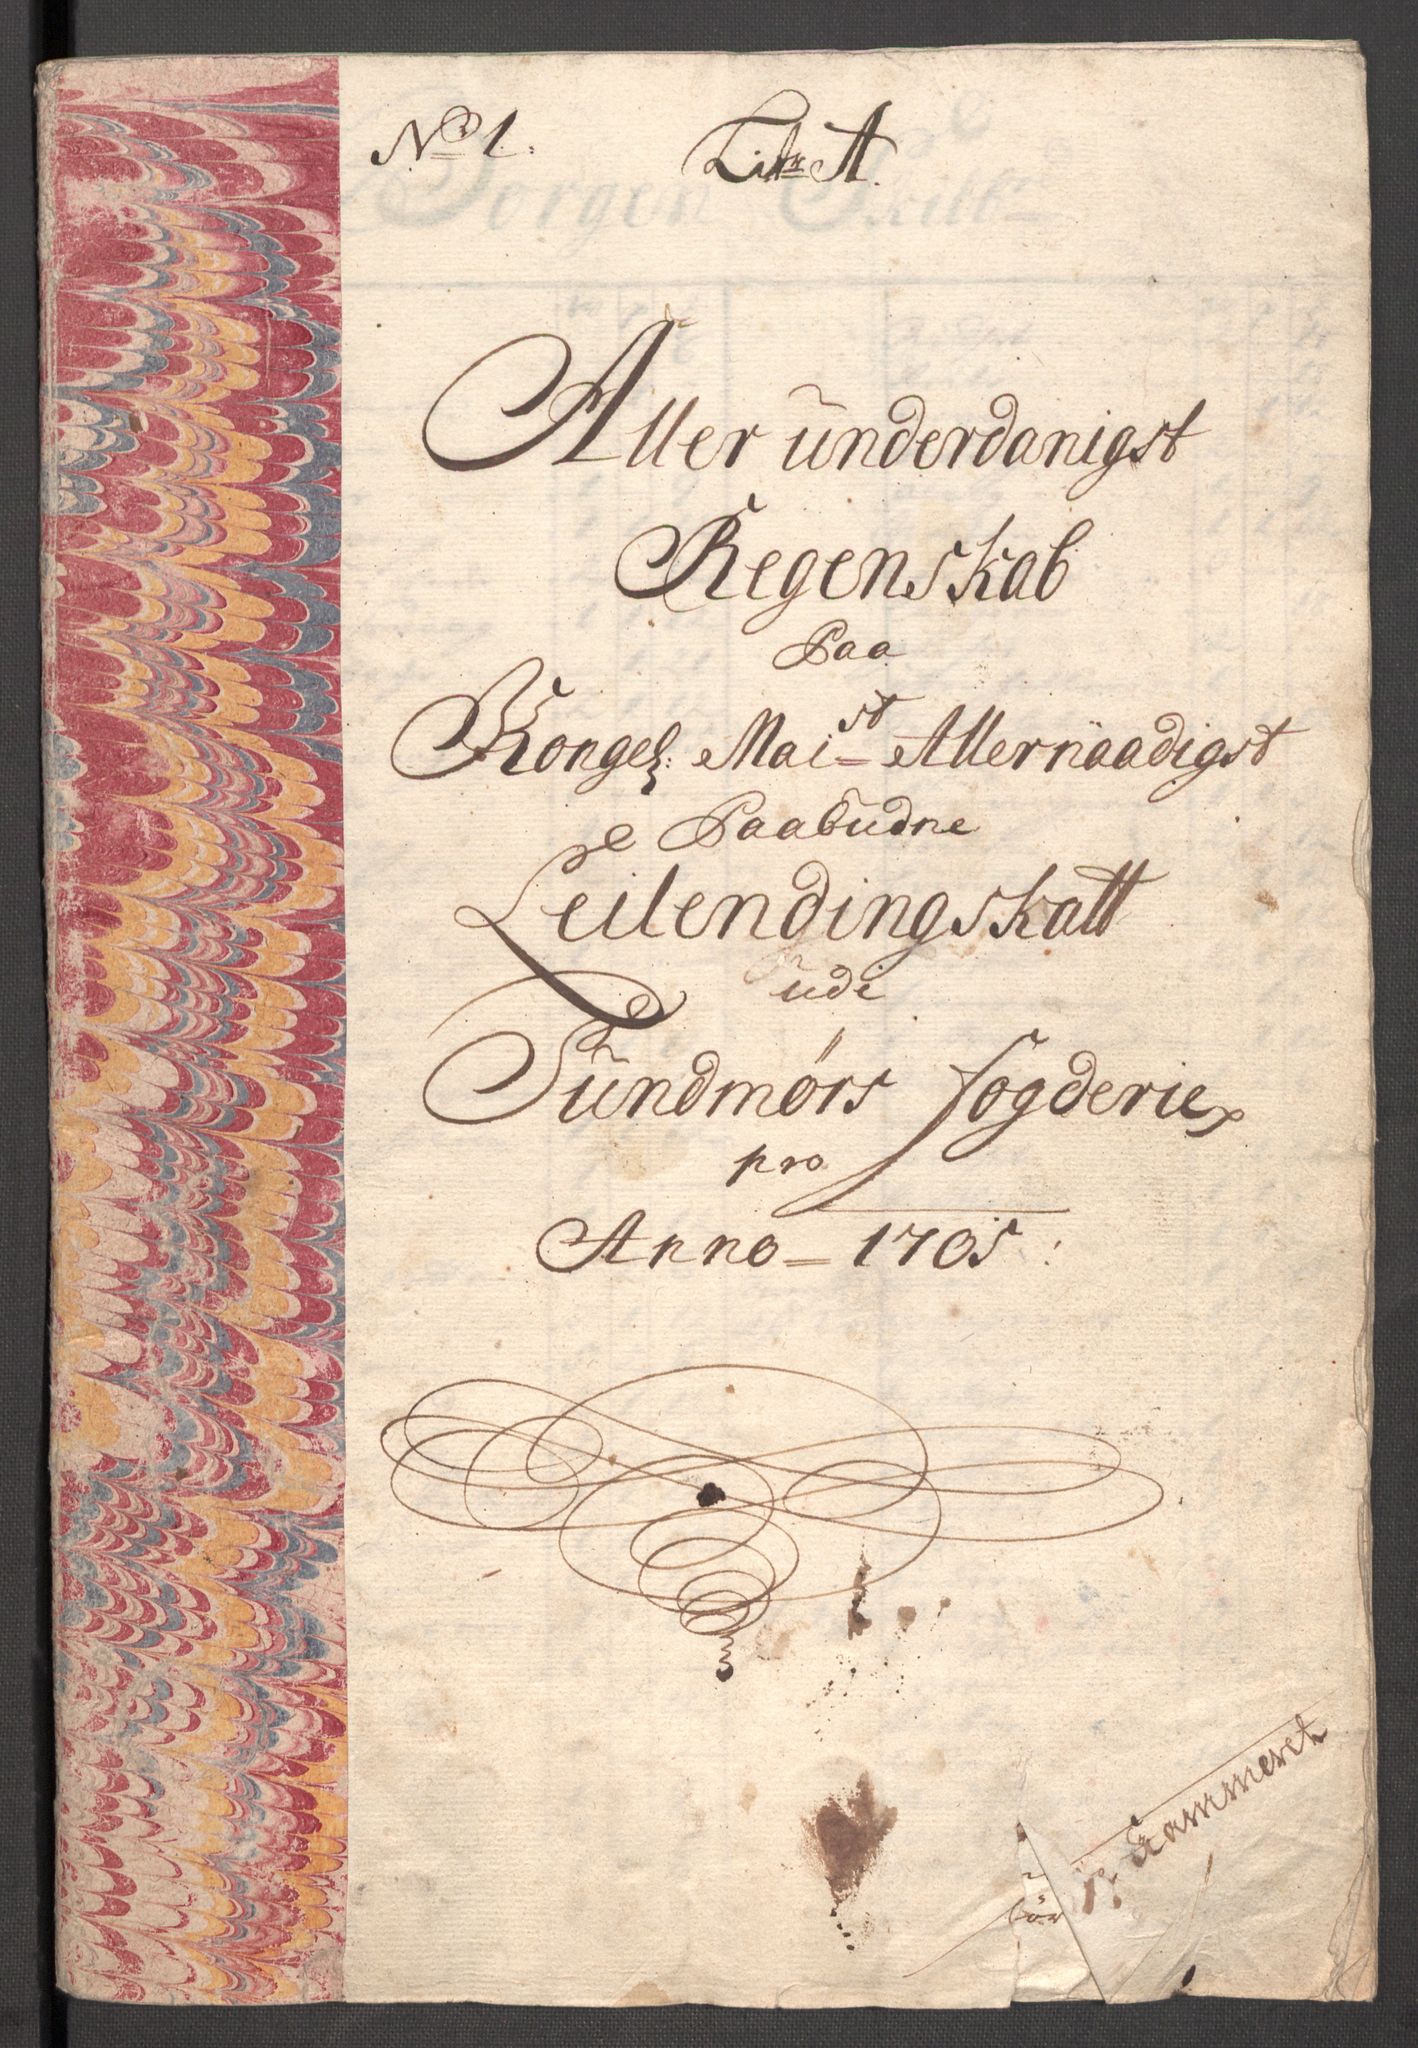 No 1.
Litr A.
Aller underdanigst
Regenskab
Paa
Kongel: Maist Allernaadigst
Paabudne
Leilendingskatt
udi
Sundmörs fogderie
pro
Anno 1705